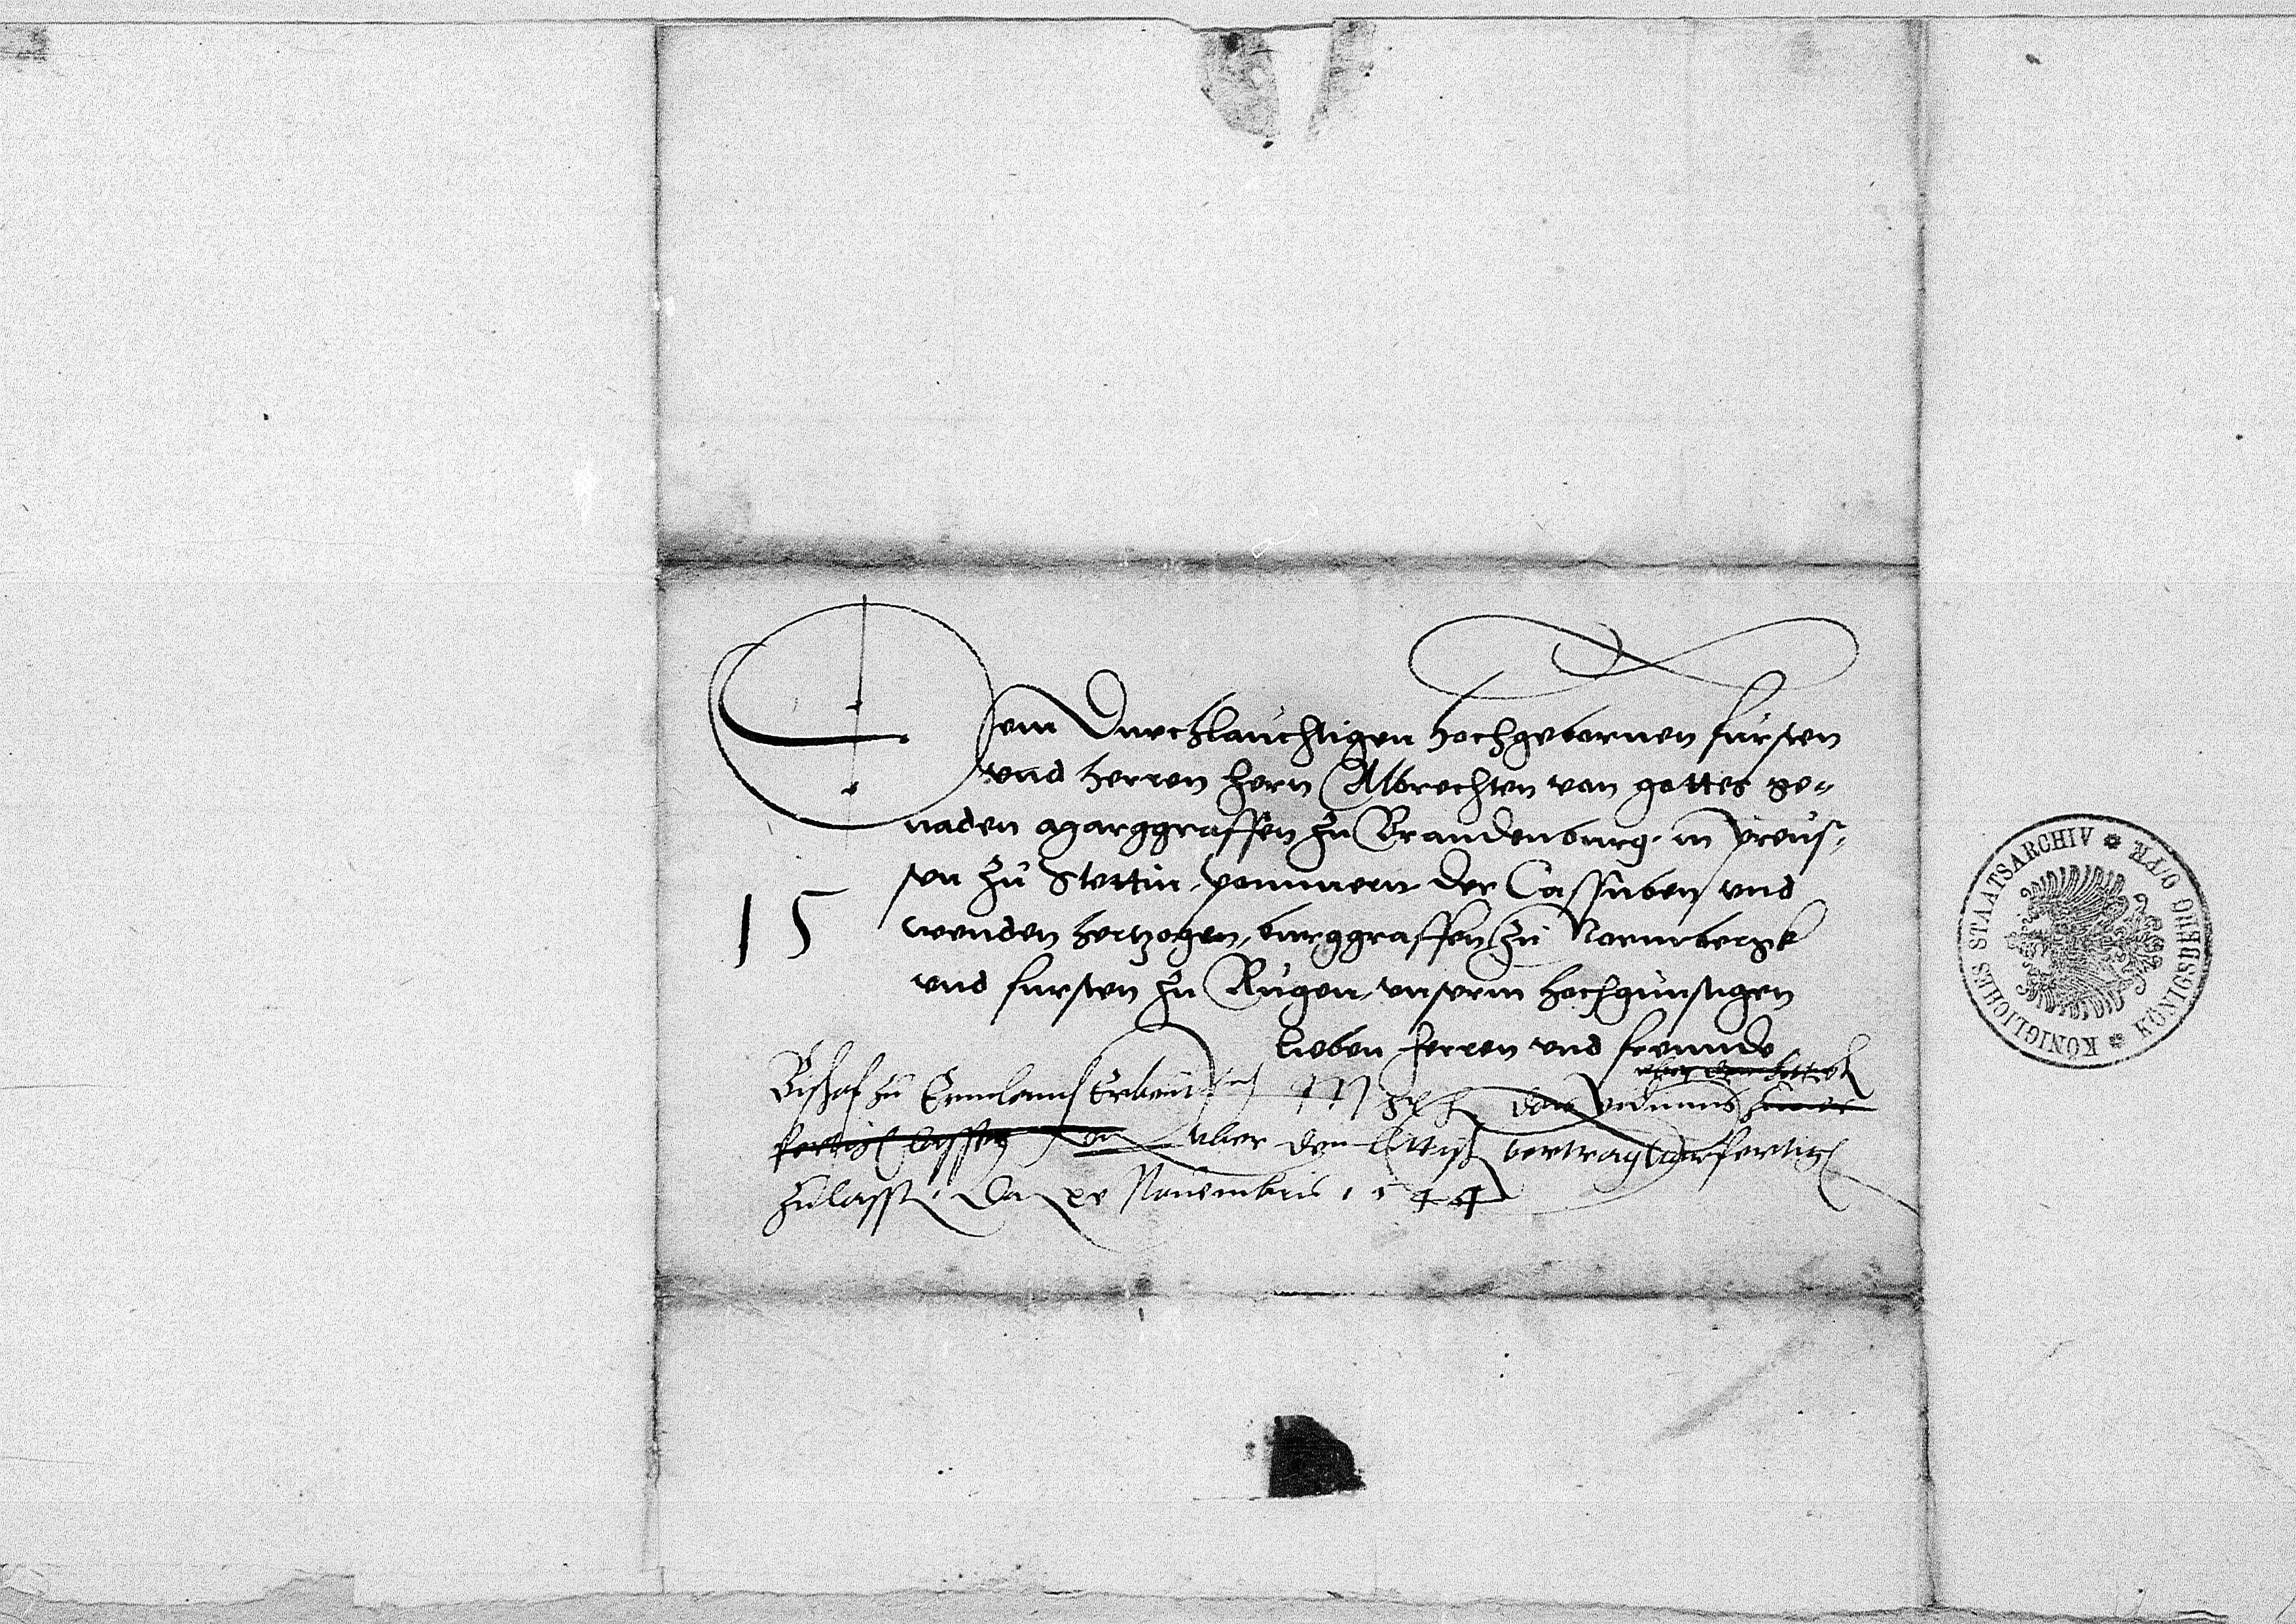 Dem Durchlauchtigen hochgebornen fursten
vnd herren hern Albrechten von gottes ge-
naden Marggraffen zu Brandenburg in Preus-
sen zu Stettin, Pommern der Cassuben vnd
wenden hertzogen, burggraffen zu Normbergk
vnd fursten zu Rugen, vnserm hochgunstigen
lieben herren vnd freunde
15
Bischof zu Ermlannd
das vidimus
vber den vertrag verfertig
zulassen Den xv Nouembris 1544
KÖNIGLICHES STAATSARCHIV * KÖNIGSBERG O/PR *